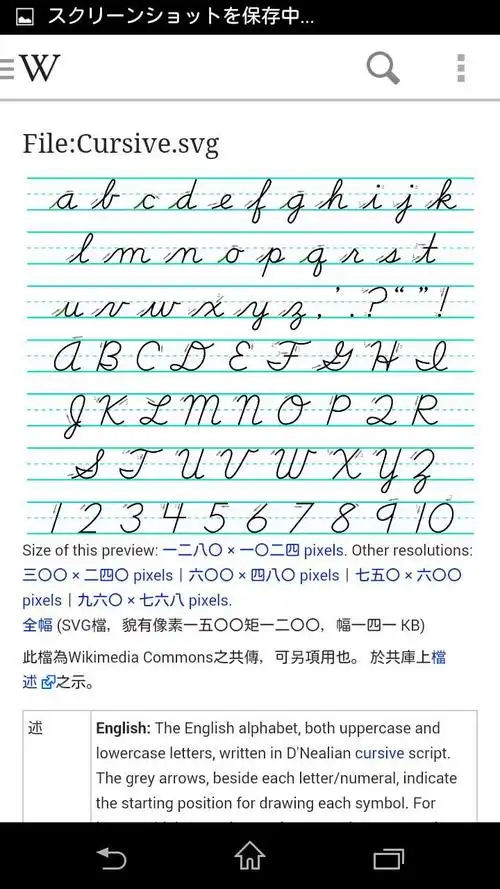 スクリーンショットを保存中...
W
File:Cursive.svg
a b c d e f g h i j k
l m n o p q r s t
u v w x y z , ' . ? “ ” !
A B C D E F G H I
J K L M N O P Q R
S T U V W X Y Z
1 2 3 4 5 6 7 8 9 10
Size of this preview: 一二八〇 × 一〇二四 pixels. Other resolutions:
三〇〇 × 二四〇 pixels | 六〇〇 × 四八〇 pixels | 七五〇 × 六〇〇
pixels | 九六〇 × 七六八 pixels.
全幅 (SVG檔，貌有像素一五〇〇矩一二〇〇，幅一四一 KB)
此檔為Wikimedia Commons之共傳，可另項用也。 於共庫上檔
述之示。
述
English: The English alphabet, both uppercase and
lowercase letters, written in D'Nealian cursive script.
The grey arrows, beside each letter/numeral, indicate
the starting position for drawing each symbol. For